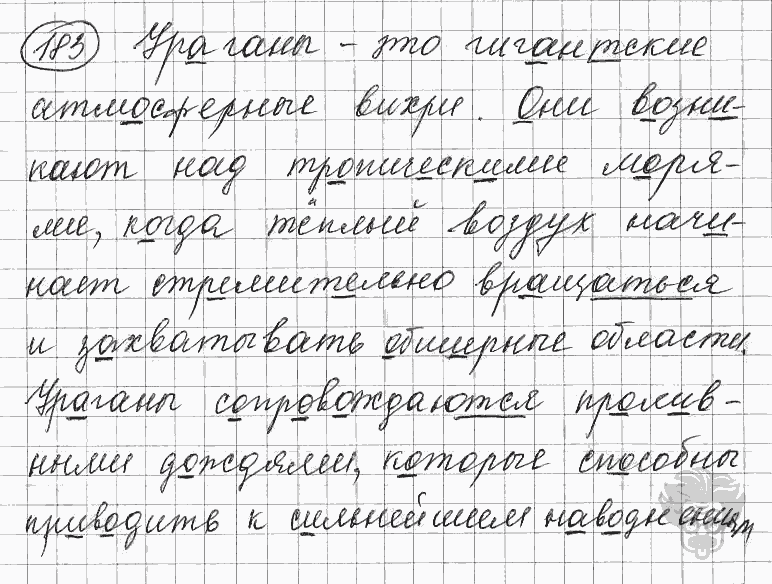 183 Ураганы – это гигантские
атмосферные вихри. Они возни-
кают над тропическими моря-
ми, когда тёплый воздух начи-
нает стремительно вращаться
и захватывать обширные области.
Ураганы сопровождаются пролив-
ными дождями, которые способны
приводить к сильнейшем наводнениям